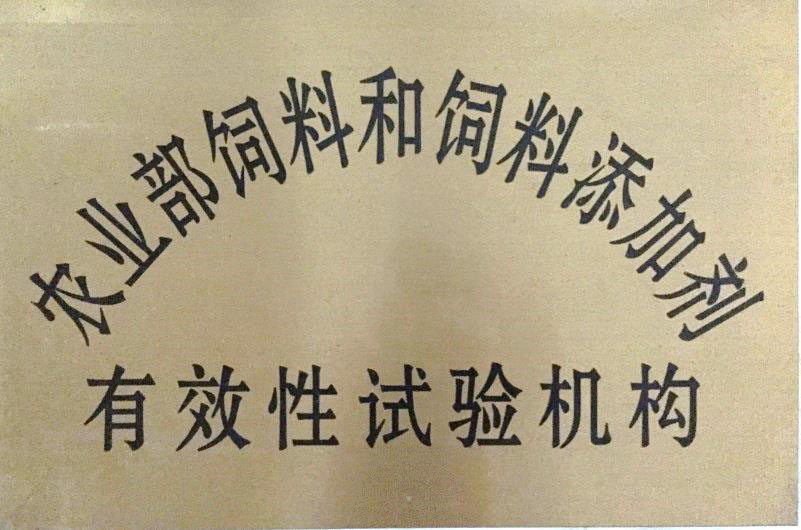 农业部饲料和饲料添加剂
有效性试验机构